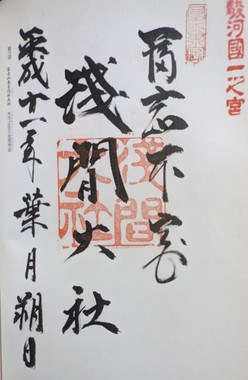 駿河國一之宮
冨士本宮
浅間大社
淺間大社
平成十一年葉月朔日